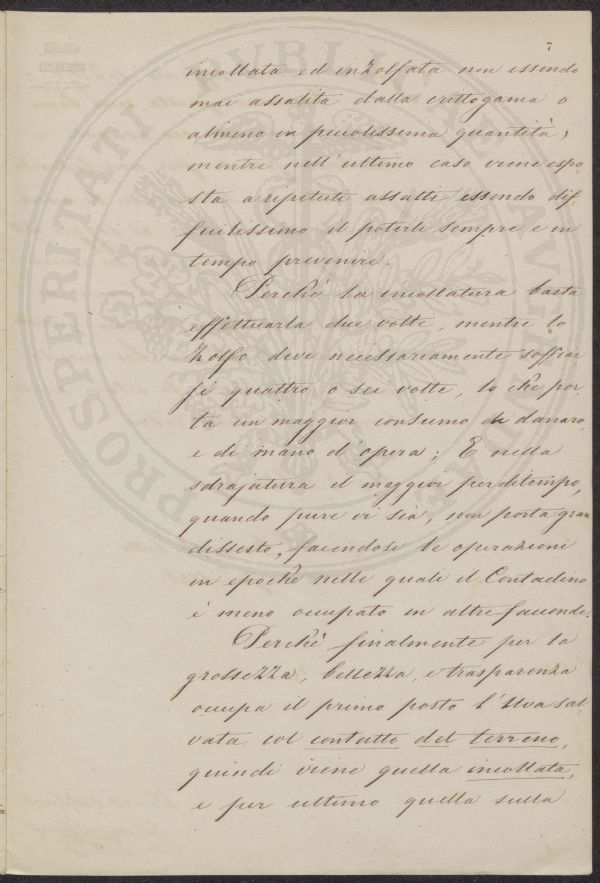 7
incollata ed inzolfata non essendo
mai assalita dalla crittogama o
almeno in piccolissima quantità,
mentre nell'ultimo caso viene espo
sta a ripetuti assalti essendo dif
ficilissimo il poterli sempre e in
tempo prevenire.
Perchè la incollatura basta
effettuarla due volte, mentre lo
Zolfo deve necessariamente soffiar
si quattro o sei volte, lo che por
ta un maggior consumo di danaro,
e di mano d'opera; E nella
sdrajatura il maggior perditempo,
quando pure vi sia, non porta gran
dissesto, facendosi le operazioni
in epoche nelle quali il Contadino
è meno occupato in altre faccende.
Perchè finalmente per la
grossezza, bellezza, e trasparenza
occupa il primo posto l'Uva sal
vata col contatto del terreno,
quindi viene quella incollata,
e per ultimo quella sulla
PROSPERITATI PVBLICAE